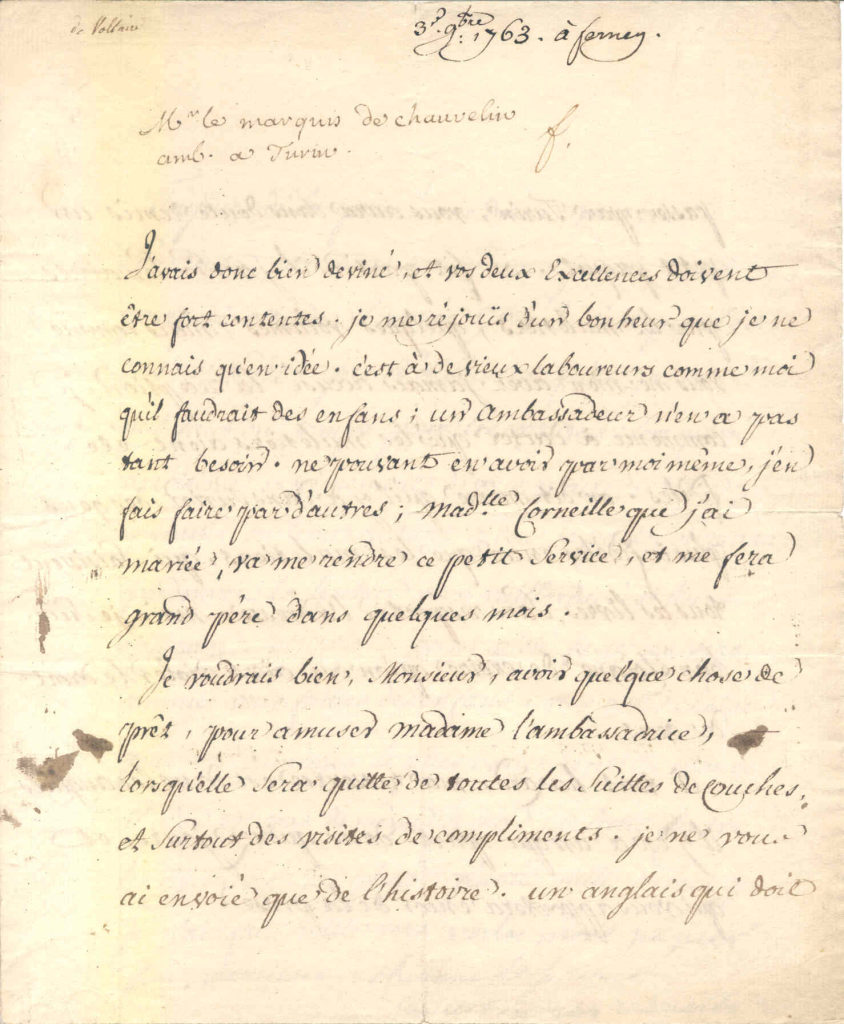 de Voltaire
3e. 9bre. 1763. à ferney.
Mr. le marquis de chauvelin
amb. a Turin.
f.
J'avais donc bien deviné, et vos deux Excellences doivent
être fort contentes. je me réjouis d'un bonheur que je ne
connais qu'en idée. c'est à de vieux laboureurs comme moi
qu'il faudrait des enfans; un ambassadeur n'en a pas
tant besoin. ne pouvant en avoir par moi même, j'en
fais faire par d'autres; madlle. Corneille que j'ai
mariée, va me rendre ce petit Service, et me fera
grand père dans quelques mois.
Je voudrais bien, Monsieur, avoir quelque chose de
prêt, pour amuser madame l'ambassadrice,
lorsqu'elle Sera quitte de toutes les Suittes de Couches,
et Surtout des visites de compliments. je ne vous
ai envoié que de l'histoire. un anglais qui doit